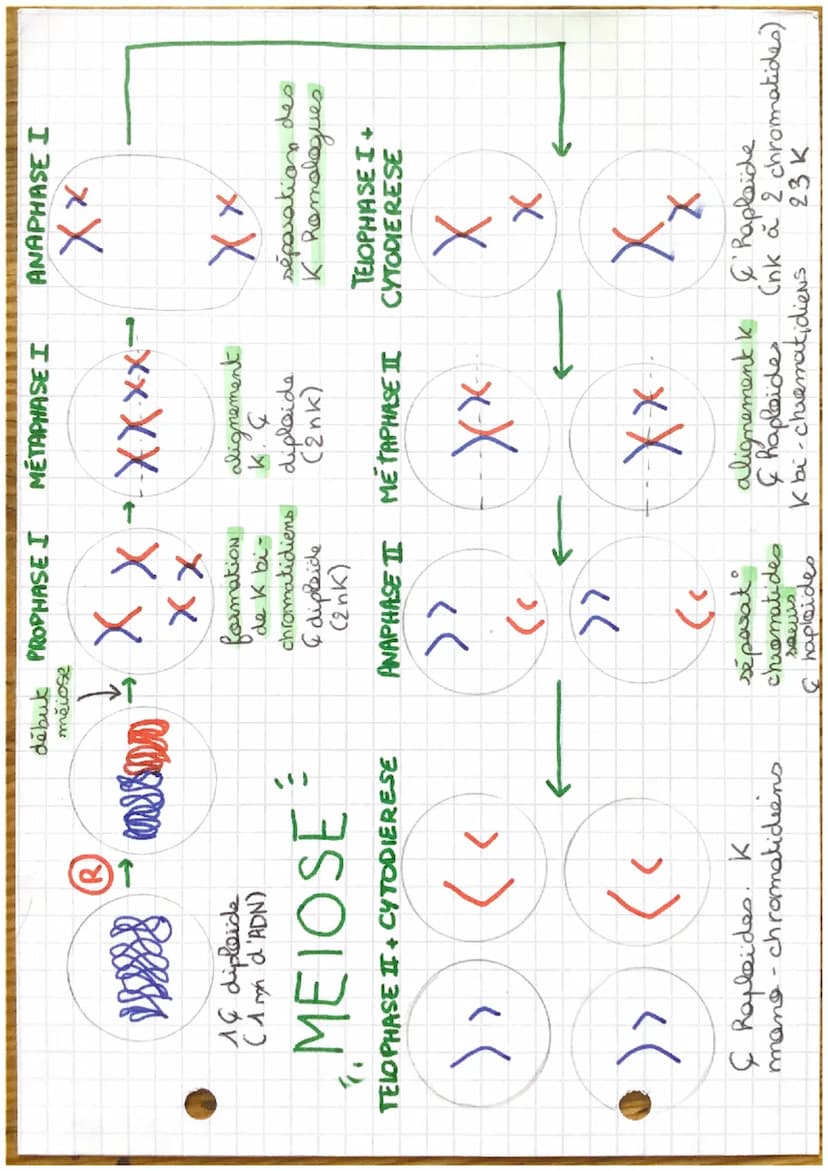 début
méiose
PROPHASE I
MÉTAPHASE I
ANAPHASE I
R
1 ȼ diploïde
(1 m d'ADN)
formation
de K bi-
chromatidiens
ȼ diploïde
(2nK)
alignement
K. ȼ
diploïde
(2nK)
séparation des
K homologues
MEIOSE
TELOPHASE II + CYTODIERESE
ANAPHASE II
MÉTAPHASE II
TELOPHASE I +
CYTODIERESE
ȼ haploïdes. K
mono-chromatidiens
séparat°
chromatides
sœurs
ȼ haploïdes
alignement K
ȼ haploïdes
K bi-chromatidiens
ȼ haploïde
(nK à 2 chromatides)
23 K